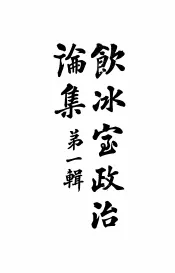 飲冰室政治
論集 第一輯